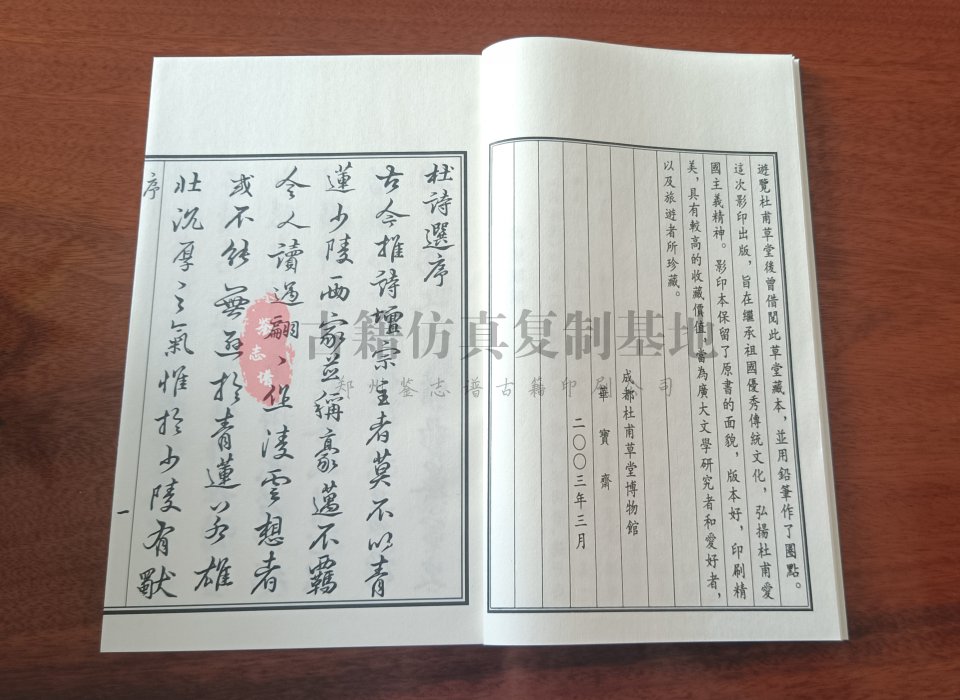 遊覽杜甫草堂後曾借閱此草堂藏本，並用鉛筆作了圈點。
這次影印出版，旨在繼承祖國優秀傳統文化，弘揚杜甫愛
國主義精神。影印本保留了原書的面貌，版本好，印刷精
美，具有較高的收藏價值，當為廣大文學研究者和愛好者，
以及旅遊者所珍藏。
成都杜甫草堂博物館
華寶齋
二〇〇三年三月
杜詩選序
古今推詩壇宗主者莫不以青
蓮少陵兩家並稱豪邁不羈
令人讀過翩〻作凌雲想者
或不能無於青蓮若雄
壯沉厚之氣惟於少陵有
序
一
古籍仿真复制基地
郑州鉴志谱古籍印刷司
鉴志谱